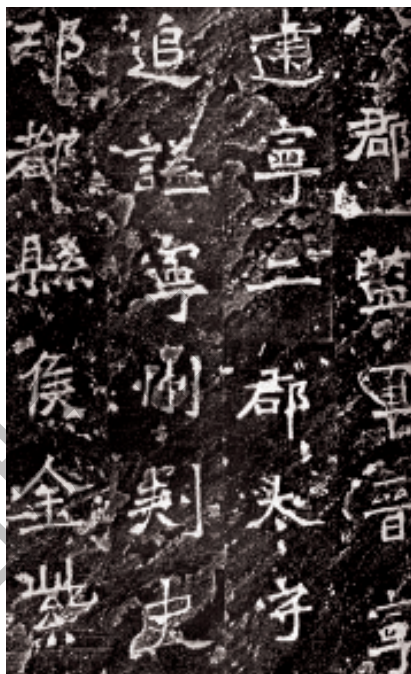 郡監軍晉寧
建寧二郡太守
追謚寧州刺史
邛都縣侯金紫